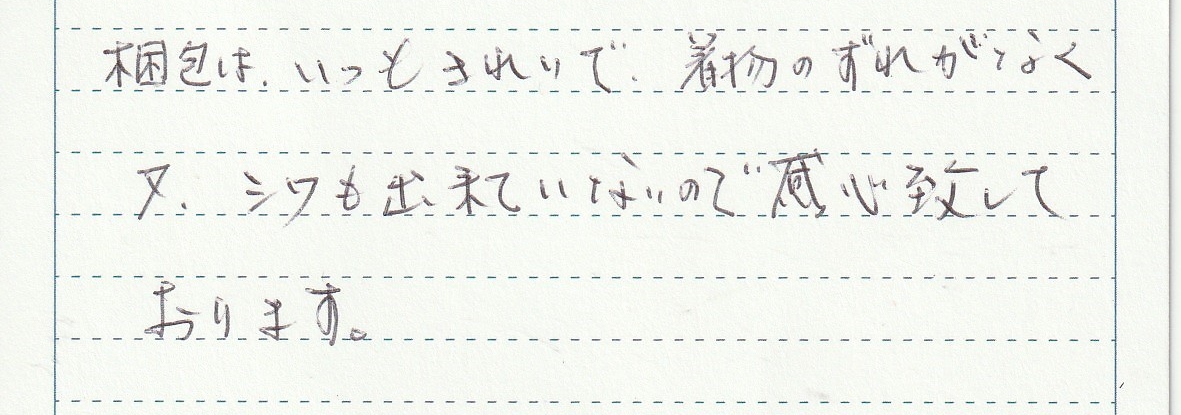 梱包は、いつもきれいで、着物のずれがなく
又、シワも出来ていないので感心致して
おります。